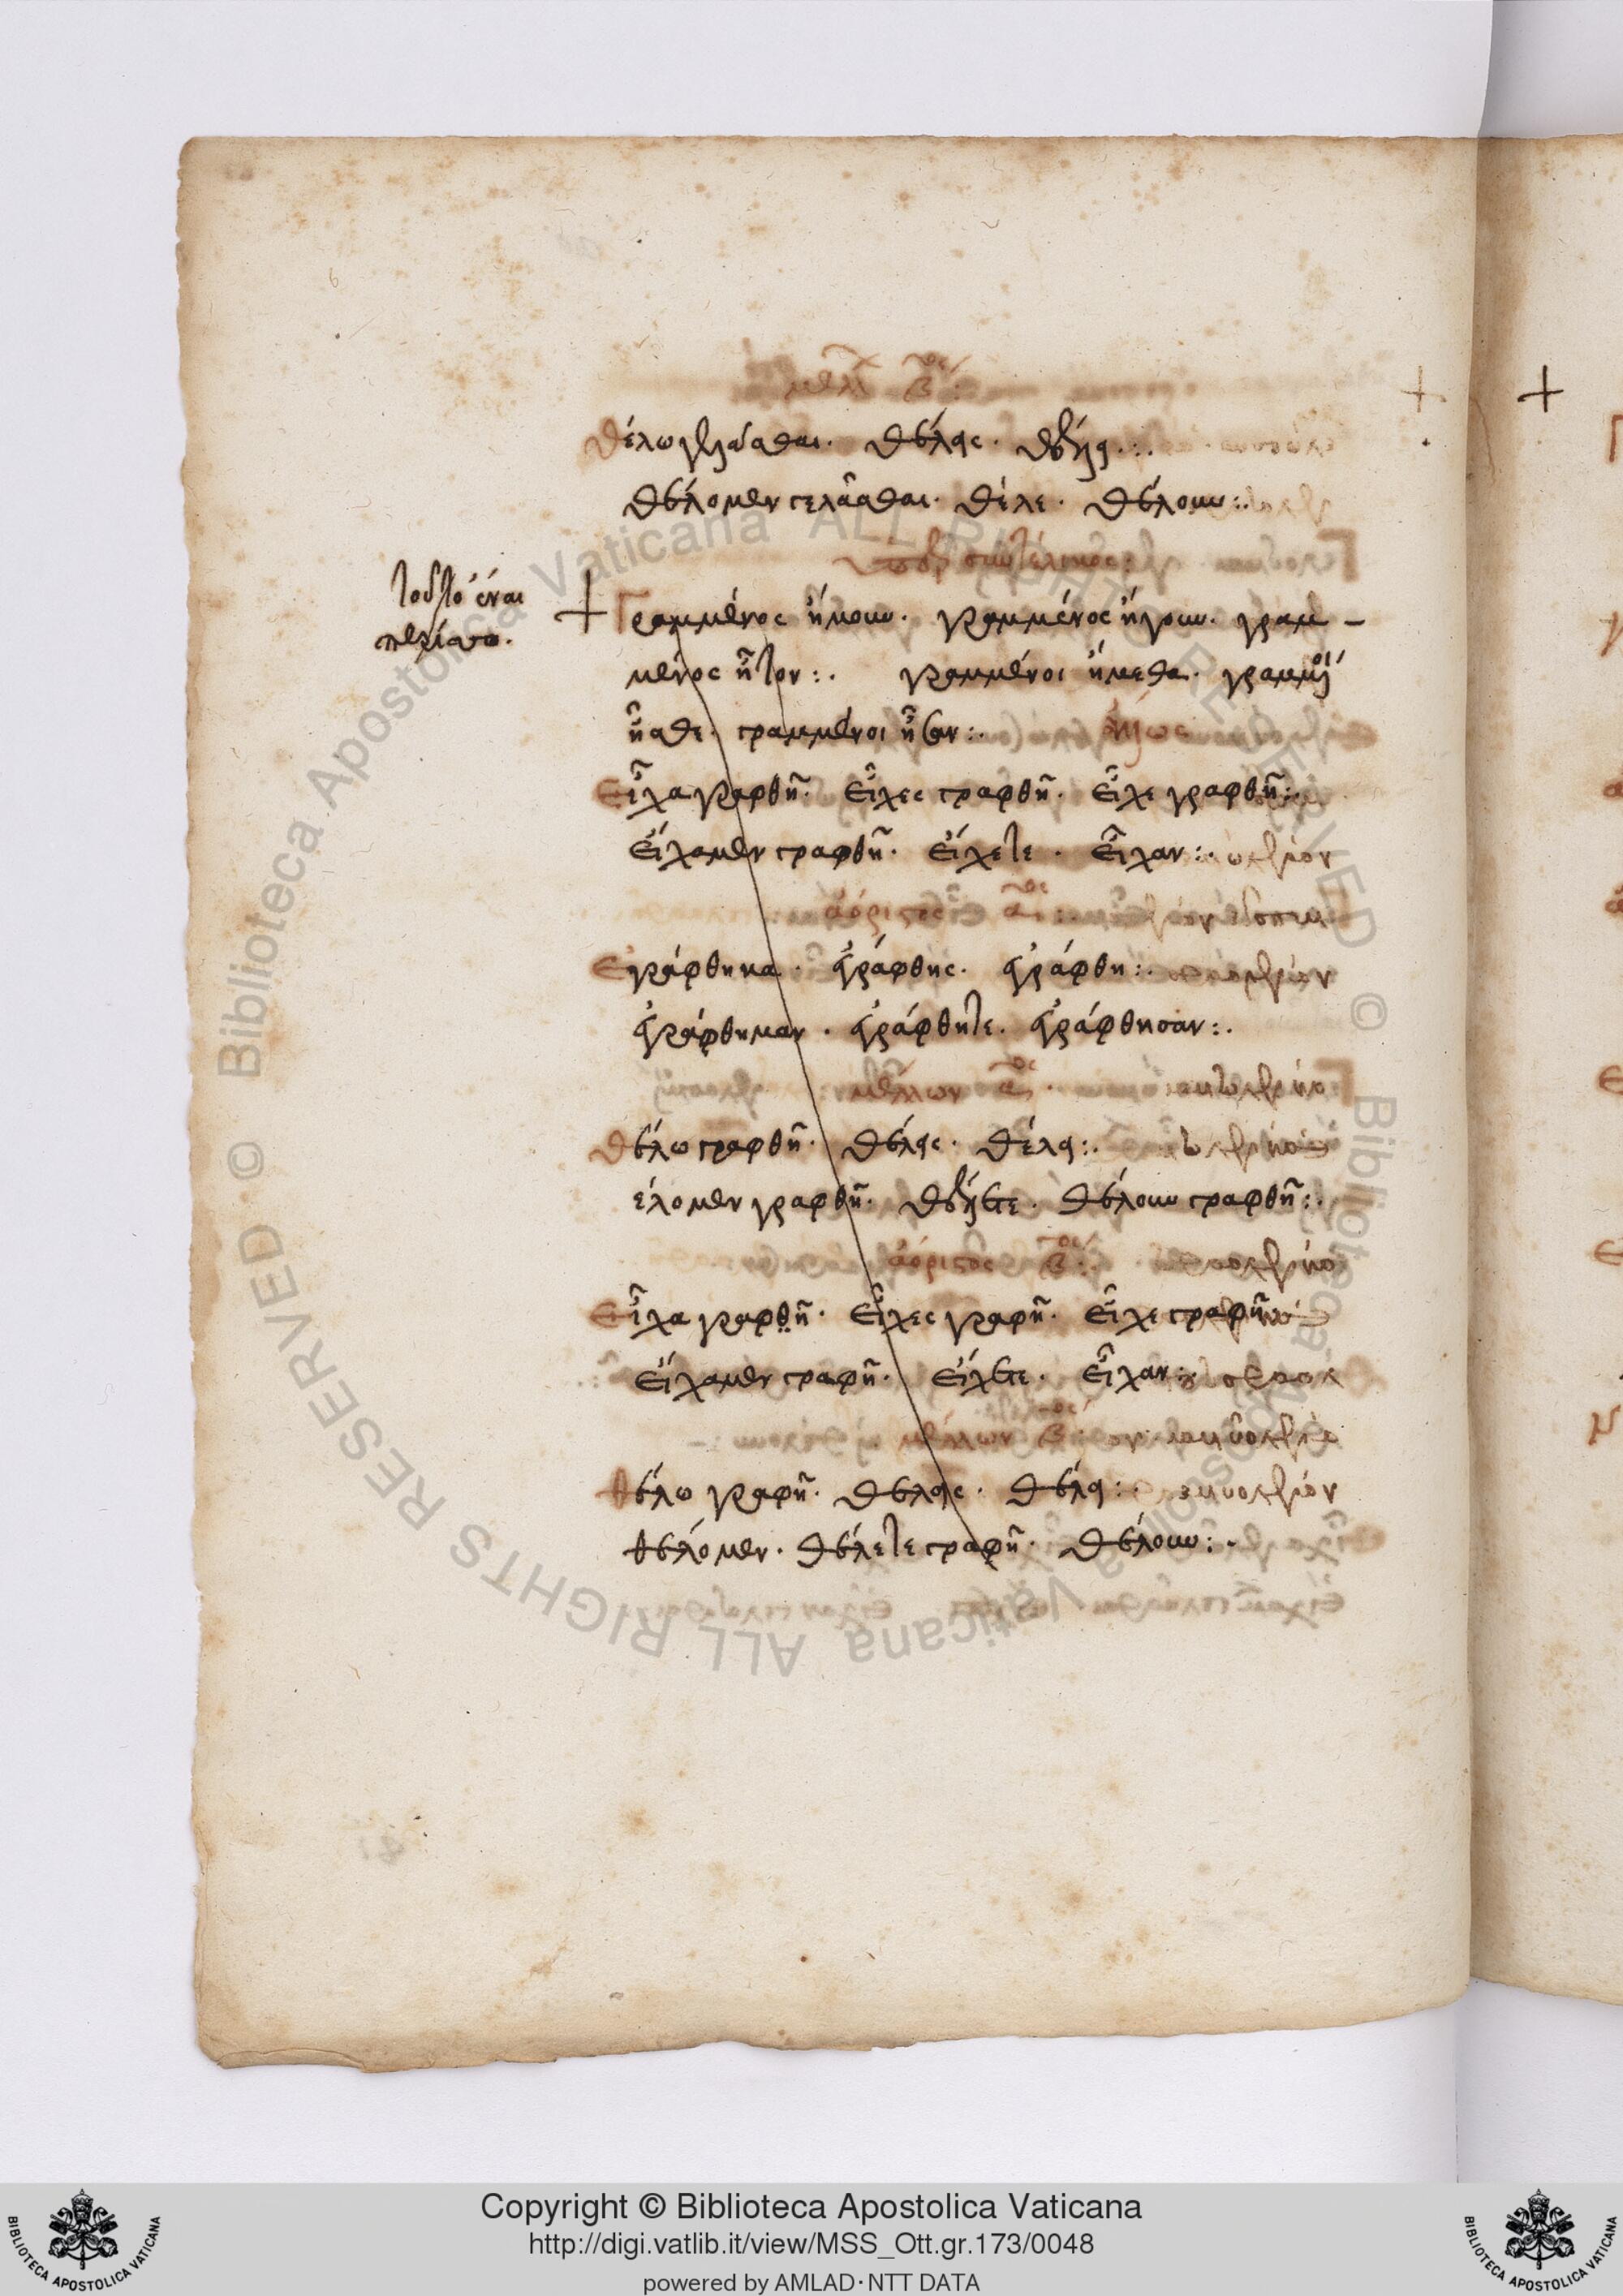 μέλλ β ος:
θέλω γελᾶσθαι. θέλεις. θέλει:.
θέλομεν γελᾶσθαι. θέλετε. θέλουν:.
ὑπερσυντέλικος:
τοῦτο ἔναι
περίσσο.
+ Γραμμένος ήμουν. γραμμένος ήσουν. γραμ-
μένος ἦτον:. γραμμένοι ήμεθα. γραμμένοι
ἦσθε. γραμμένοι ἦσαν:. ἄλλως
Εἶχα γραφθῆ. εἶχες γραφθῆ. εἶχε γραφθῆ:.
εἴχαμεν γραφθῆ. εἴχετε. εἶχαν:.
ἀόριστος α ος:
Εγράφθηκα. ἐγράφθης. ἐγράφθη:.
ἐγράφθημαν. ἐγράφθητε. ἐγράφθησαν:.
μέλλων α ος.
Θέλω γραφθῆ. θέλεις. θέλει:.
έλομεν γραφθῆ. θέλετε. θέλουν γραφθῆ:.
ἀόριστος β ος:.
Εἶχα γραφθῆ. εἶχες γραφῆ. εἶχε γραφῆ
εἴχαμεν γραφῆ. εἴχετε. εἶχαν:
μέλλων β ος:
Θέλω γραφῆ. θέλεις. θέλει:
θέλομεν. θέλετε γραφῆ. θέλουν:.
Copyright © Biblioteca Apostolica Vaticana
http://digi.vatlib.it/view/MSS_Ott.gr.173/0048
powered by AMLAD·NTT DATA